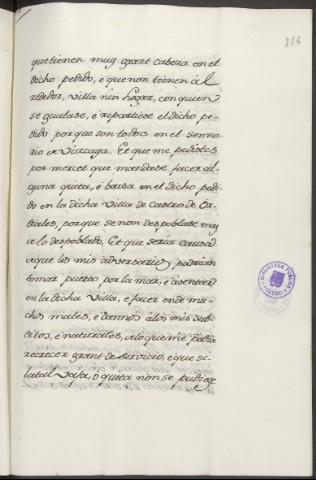 354
que tienen muy grant cabeza en el
dicho pedido, e que non tienen al
rededor, villa nin logar, con quien
se gualase, e repartiese el dicho pe-
dido por que son todos en el senno-
rio de Vizcaya. Et que me pedistes
por mercet que mandase facer al-
guna quita, e baxa en el dicho pedi-
do en la dicha villa de Castro de Or-
diales, por que se non despoblase mas
de lo despoblado. Et que seria causa
que los mis adversarios, podrian
tomar puerto por la mar, e asentar
en la dicha villa, e facer ende mu-
chos males, e dannos a los mis sub-
ditos, e naturales, a lo que me podria
recrecer grant deservicio, e que si
la tal vaja, o quita non se pudiese
BIBLIOTECA PUBLICA
TOLEDO